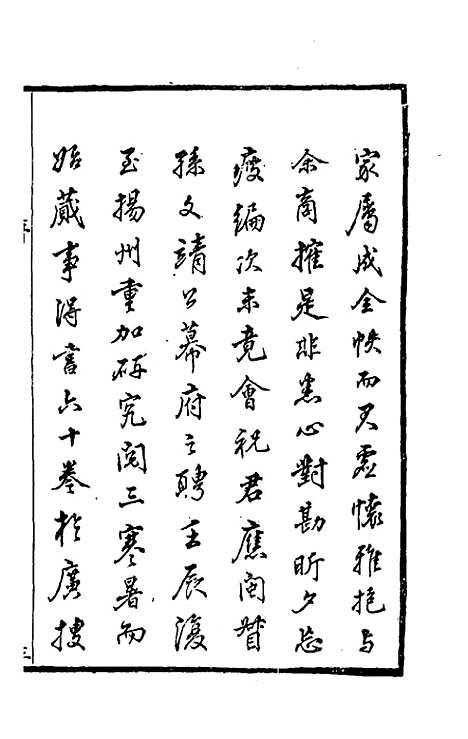 家屬成全帙而君虛懷雅抱與
余商搉是非悉心對勘昕夕忘
疲編次未竟會祝君應閩督
孫文靖公幕府之聘壬辰復
至揚州重加研究閱三寒暑而
始蕆事得書六十卷於廣搜
三